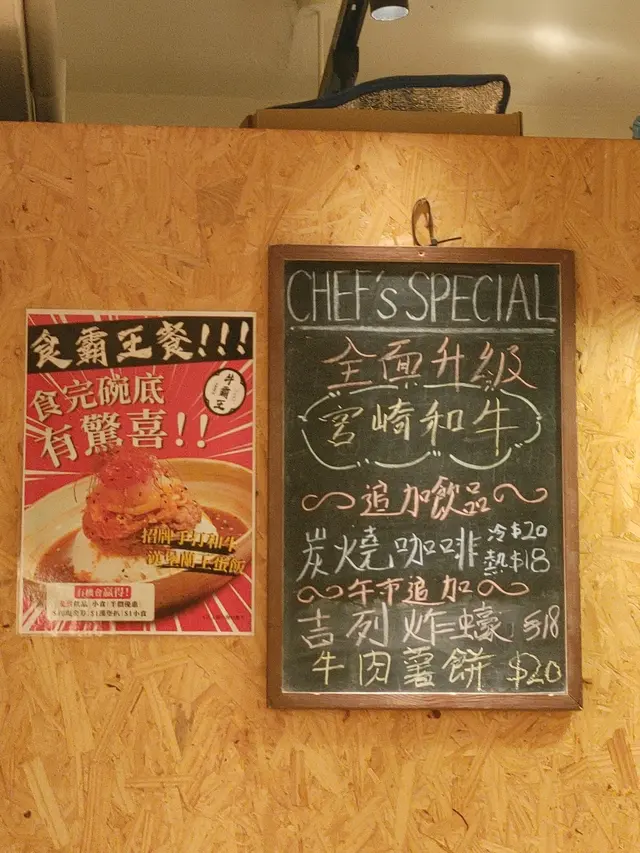 食霸王餐!!!
食完碗底
有驚喜!!
牛霸王
招牌手打和牛
漢堡蘭王蛋飯
有機會贏得!
CHEF's SPECIAL
全面升級
宮崎和牛
追加飲品
炭燒咖啡 冷$20
熱$18
午市追加
吉列炸蠔 $18
牛肉薯餅 $20